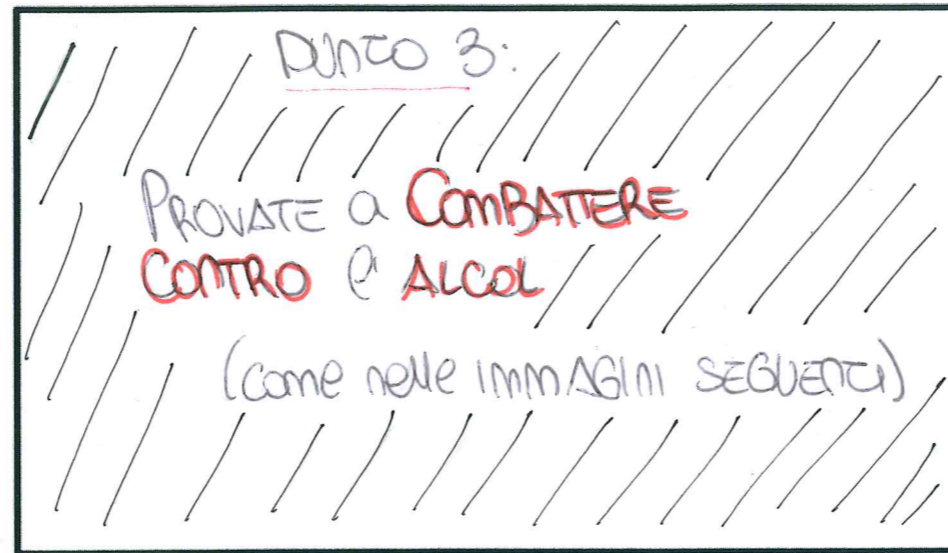 PUNTO 3:
PROVATE a COMBATTERE
CONTRO l' ALCOL
(come nelle IMMAGINI SEGUENTI)